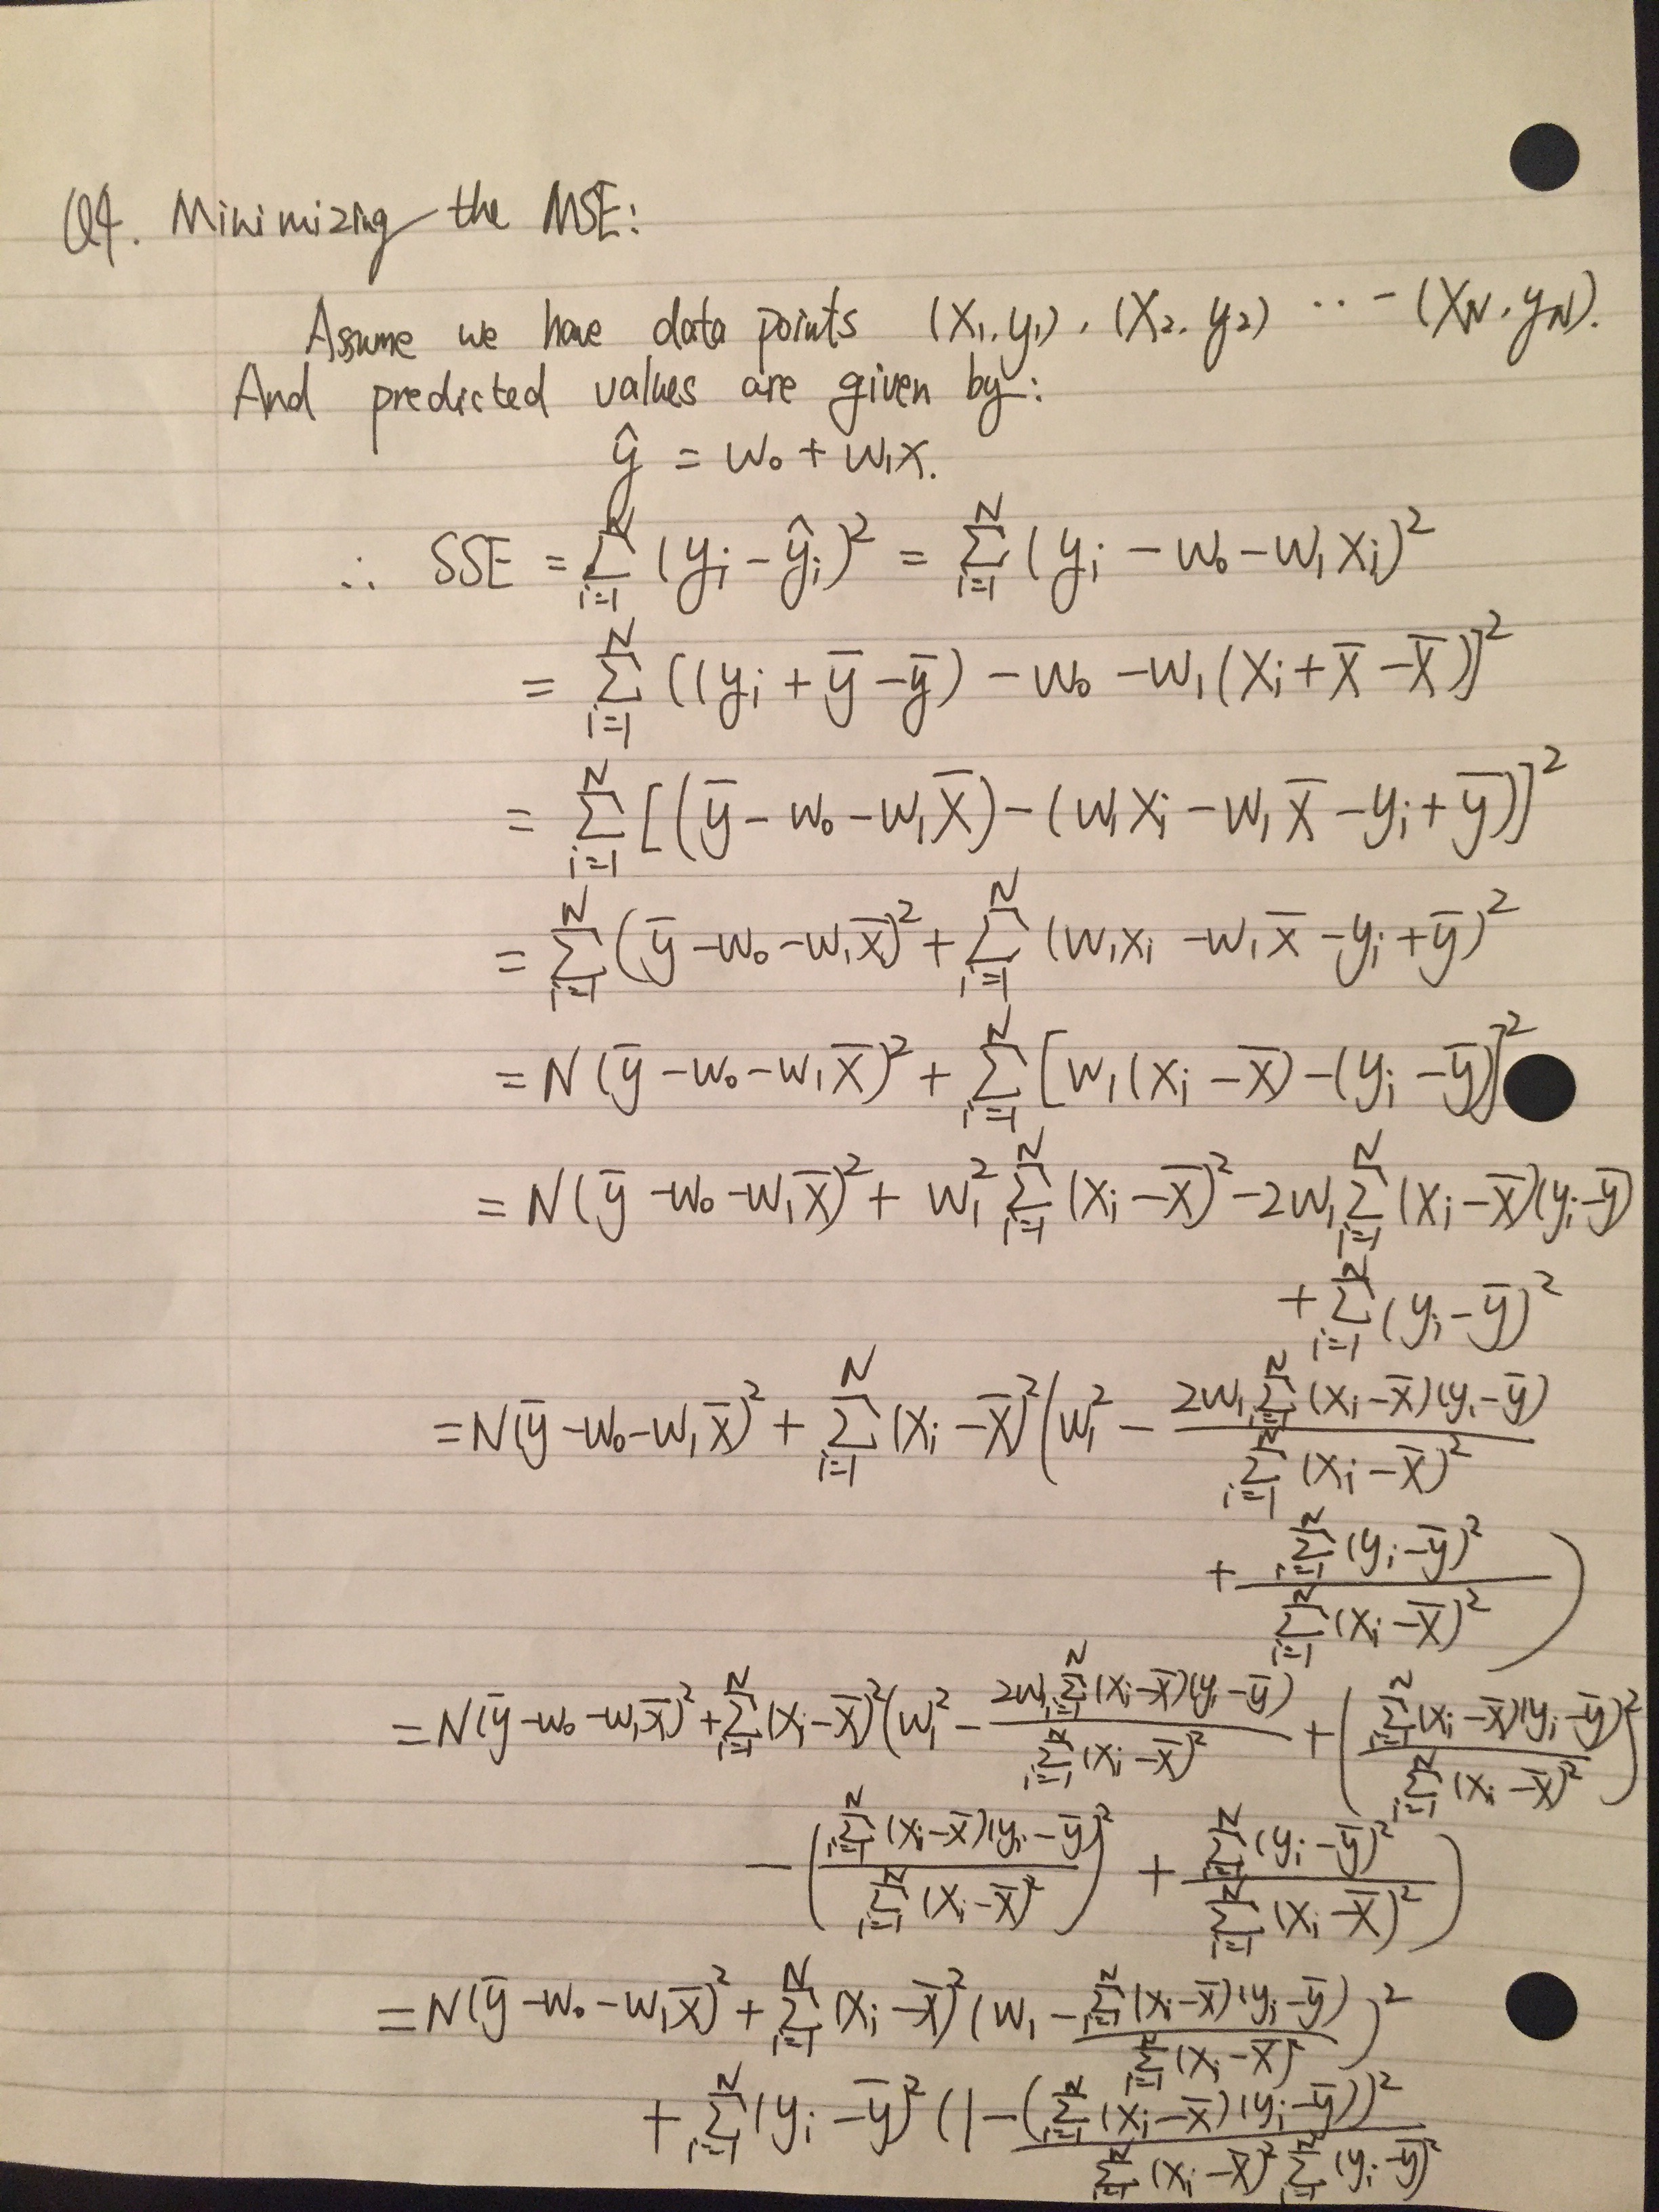 Q4. Minimizing the MSE:
Assume we have data points (x₁, y₁), (x₂, y₂) ··· (x_N, y_N).
And predicted values are given by:
ŷ = w₀ + w₁x.
∴ SSE = Σ_{i=1}^{N} (y_i − ŷ_i)² = Σ_{i=1}^{N} (y_i − w₀ − w₁x_i)²
= Σ_{i=1}^{N} ((y_i + ȳ − ȳ) − w₀ − w₁(x_i + x̄ − x̄)]²
= Σ_{i=1}^{N} [(ȳ − w₀ − w₁x̄) − (w₁x_i − w₁x̄ − y_i + ȳ)]²
= Σ_{i=1}^{N} (ȳ − w₀ − w₁x̄)² + Σ_{i=1}^{N} (w₁x_i − w₁x̄ − y_i + ȳ)²
= N(ȳ − w₀ − w₁x̄)² + Σ_{i=1}^{N} [w₁(x_i − x̄) − (y_i − ȳ)]²
= N(ȳ − w₀ − w₁x̄)² + w₁² Σ_{i=1}^{N} (x_i − x̄)² − 2w₁ Σ_{i=1}^{N} (x_i − x̄)(y_i − ȳ)
+ Σ_{i=1}^{N} (y_i − ȳ)²
= N(ȳ − w₀ − w₁x̄)² + Σ_{i=1}^{N} (x_i − x̄)² (w₁² − 2w₁ Σ_{i=1}^{N} (x_i − x̄)(y_i − ȳ) / Σ_{i=1}^{N} (x_i − x̄)²
+ Σ_{i=1}^{N} (y_i − ȳ)² / Σ_{i=1}^{N} (x_i − x̄)² )
= N(ȳ − w₀ − w₁x̄)² + Σ_{i=1}^{N} (x_i − x̄)² (w₁² − 2w₁ Σ_{i=1}^{N} (x_i − x̄)(y_i − ȳ) / Σ_{i=1}^{N} (x_i − x̄)² + ( Σ_{i=1}^{N} (x_i − x̄)(y_i − ȳ) / Σ_{i=1}^{N} (x_i − x̄)² )²
− ( Σ_{i=1}^{N} (x_i − x̄)(y_i − ȳ) / Σ_{i=1}^{N} (x_i − x̄)² )² + Σ_{i=1}^{N} (y_i − ȳ)² / Σ_{i=1}^{N} (x_i − x̄)² )
= N(ȳ − w₀ − w₁x̄)² + Σ_{i=1}^{N} (x_i − x̄)² (w₁ − Σ_{i=1}^{N} (x_i − x̄)(y_i − ȳ) / Σ_{i=1}^{N} (x_i − x̄)² )²
+ Σ_{i=1}^{N} (y_i − ȳ)² (1 − (Σ_{i=1}^{N} (x_i − x̄)(y_i − ȳ))² / Σ_{i=1}^{N} (x_i − x̄)² Σ_{i=1}^{N} (y_i − ȳ)²